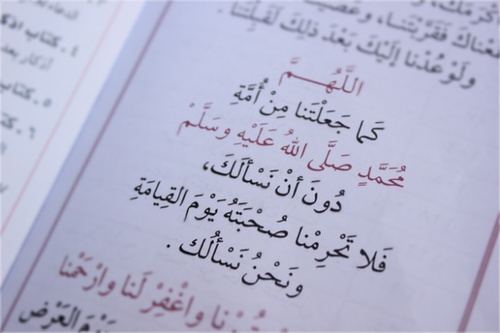 أكرمك، وعصينا
عناك فقربتنا، و
ولو عدنا إليك بعد ذلك لقبلتنا.
اللَّهُمَّ
كَمَا جَعَلْتَنَا مِنْ أُمَّةِ
مُحَمَّدٍ صَلَّى اللهُ عَلَيْهِ وسَلَّمْ
دُونَ أنْ نَسْألَكَ،
فَلا تَحْرِمْنا صُحْبَتَهُ يَوْمَ القِيامَةِ
ونَحْنُ نَسْألُك.
واغْفِرْ لَنا وارْحَمْنا
يَوْمَ العَرْضِ
٤. كتاب
أذكار بعد
٥. كتا
٦.